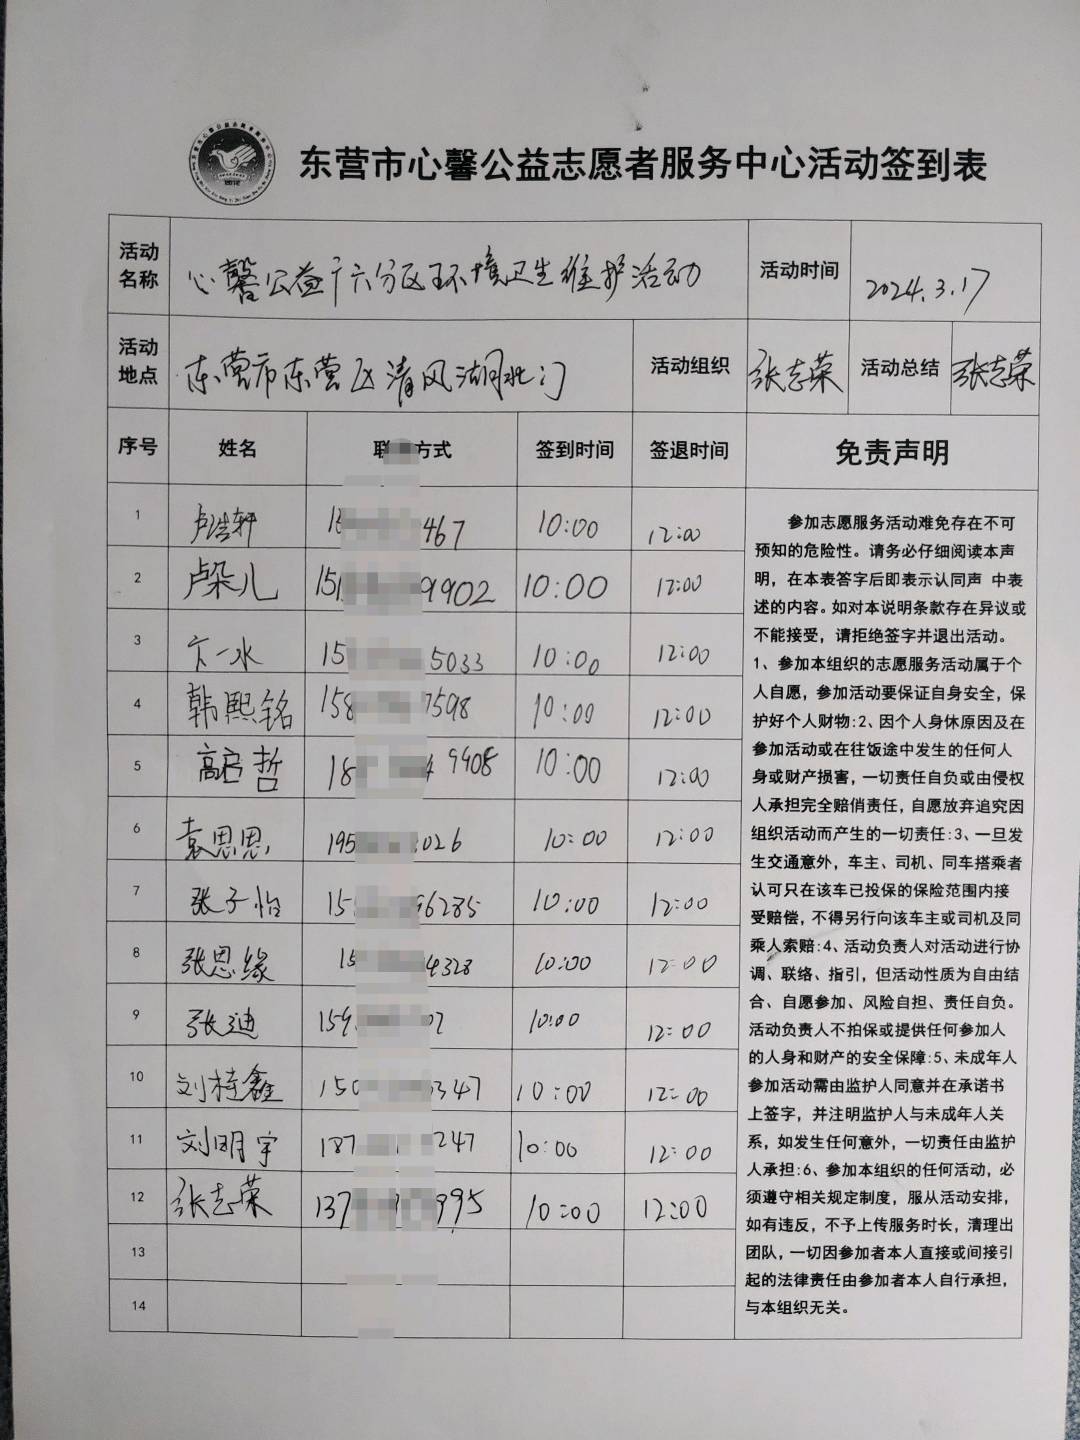 东营市心馨公益志愿者服务中心活动签到表
活动名称 心馨公益十六分区环境卫生维护活动 活动时间 2024.3.17
活动地点 东营市东营区清风湖北门 活动组织 张志荣 活动总结 张志荣
序号 姓名 联 方式 签到时间 签退时间 免责声明
1 卢浩轩 467 10:00 12:00
2 卢朵儿 151 9902 10:00 12:00
3 卞一水 15 5033 10:00 12:00
4 韩熙铭 158 7598 10:00 12:00
5 高启哲 18 9408 10:00 12:00
6 袁思思 195 026 10:00 12:00
7 张子怡 15 96285 10:00 12:00
8 张恩缘 15 4328 10:00 12:00
9 张迪 159 10:00 12:00
10 刘梓鑫 150 347 10:00 12:00
11 刘明宇 187 247 10:00 12:00
12 张志荣 137 995 10:00 12:00
13
14
参加志愿服务活动难免存在不可
预知的危险性。请务必仔细阅读本声
明，在本表答字后即表示认同声 中表
述的内容。如对本说明条款存在异议或
不能接受，请拒绝签字并退出活动。
1、参加本组织的志愿服务活动属于个
人自愿，参加活动要保证自身安全，保
护好个人财物:2、因个人身休原因及在
参加活动或在往饭途中发生的任何人
身或财产损害，一切责任自负或由侵权
人承担完全赔俏责任，自愿放弃追究因
组织活动而产生的一切责任:3、一旦发
生交通意外，车主、司机、同车搭乘者
认可只在该车已投保的保险范围内接
受赔偿，不得另行向该车主或司机及同
乘人索赔:4、活动负责人对活动进行协
调、联络、指引，但活动性质为自由结
合、自愿参加、风险自担、责任自负。
活动负责人不拍保或提供任何参加人
的人身和财产的安全保障:5、未成年人
参加活动需由监护人同意并在承诺书
上签字，并注明监护人与未成年人关
系，如发生任何意外，一切责任由监护
人承担:6、参加本组织的任何活动，必
须遵守相关规定制度，服从活动安排，
如有违反，不予上传服务时长，清理出
团队，一切因参加者本人直接或间接引
起的法律责任由参加者本人自行承担，
与本组织无关。